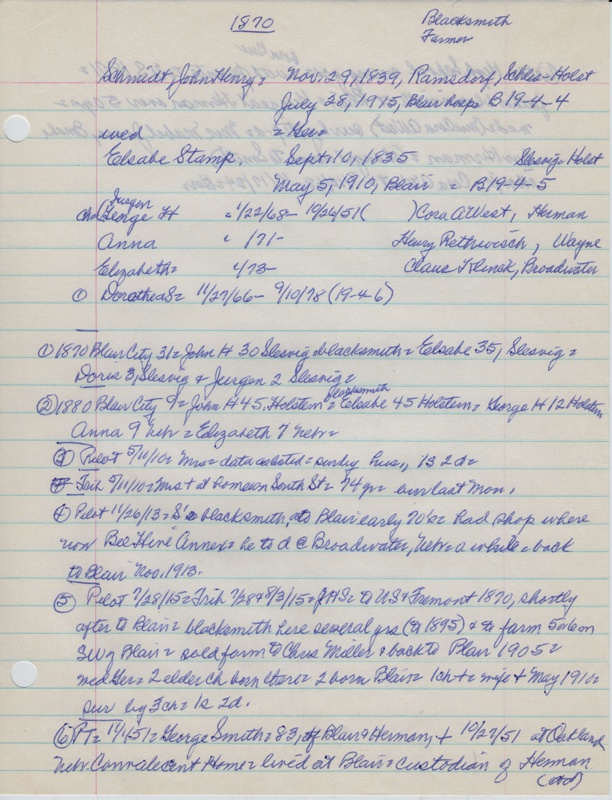 1870
Blacksmith
Farmer
Schmidt, John Henry = Nov. 29, 1839, Ramsdorf, Schles-Holst
July 28, 1915, Blair B 19-4-4
wed = Ger=
Elsabe Stamp, Sept. 10, 1835 Slesvig Holst
May 5, 1910, Blair = B19-4-5
Jurgen
ch) George H = 1/22/68 - 10/26/51 ( ) Cora A West, Herman
Anna " /71- Henry Rethwisch, Wayne
Elizabeth= " /73- Claus Klinck, Broadwater
① Dorothea S= 11/27/66 - 9/10/78 (19-4-6)
① 1870 Blair City 31= John H 30 Slesvig blacksmith= Elsabe 35, Slesvig=
Doris 3, Slesvig & Jurgen 2 Slesvig=
blacksmith
② 1880 Blair City 9= John H 45, Holstein= Elsabe 45 Holstein= George H 12 Holstein
Anna 9 Nebr= Elizabeth 7 Nebr=
③ Pilot 5/11/10= Mrs= data = sur by hus., 1s 2d=
Trib 5/11/10= Mrs + at home on South St= 74 yr= bur last Mon.
④ Pilot 11/26/13= S'= blacksmith, to Blair early 70's= had shop where
now Bee Hive Annex= he to d @ Broadwater, Nebr= a while= back
to Blair Nov. 1913.
⑤ Pilot 7/28/15= Trib 7/28 & 8/3/15= JHS= to US & Fremont 1870, shortly
after to Blair= blacksmith here several yrs (to 1895) & to farm 5 m
SW of Blair= sold farm to Chris Moller & back to Blair 1905=
med Ger= 2 elder ch born there= 2 born Blair= 1 ch + = wife + May 1910=
sur by 3 ch= 1s 2d.
⑥ = 11/1/51= George Smith= 83, of Blair & Herman, + 10/27/51 at Oakland
Nebr. Convalecent Home= lived at Blair= custodian of Herman